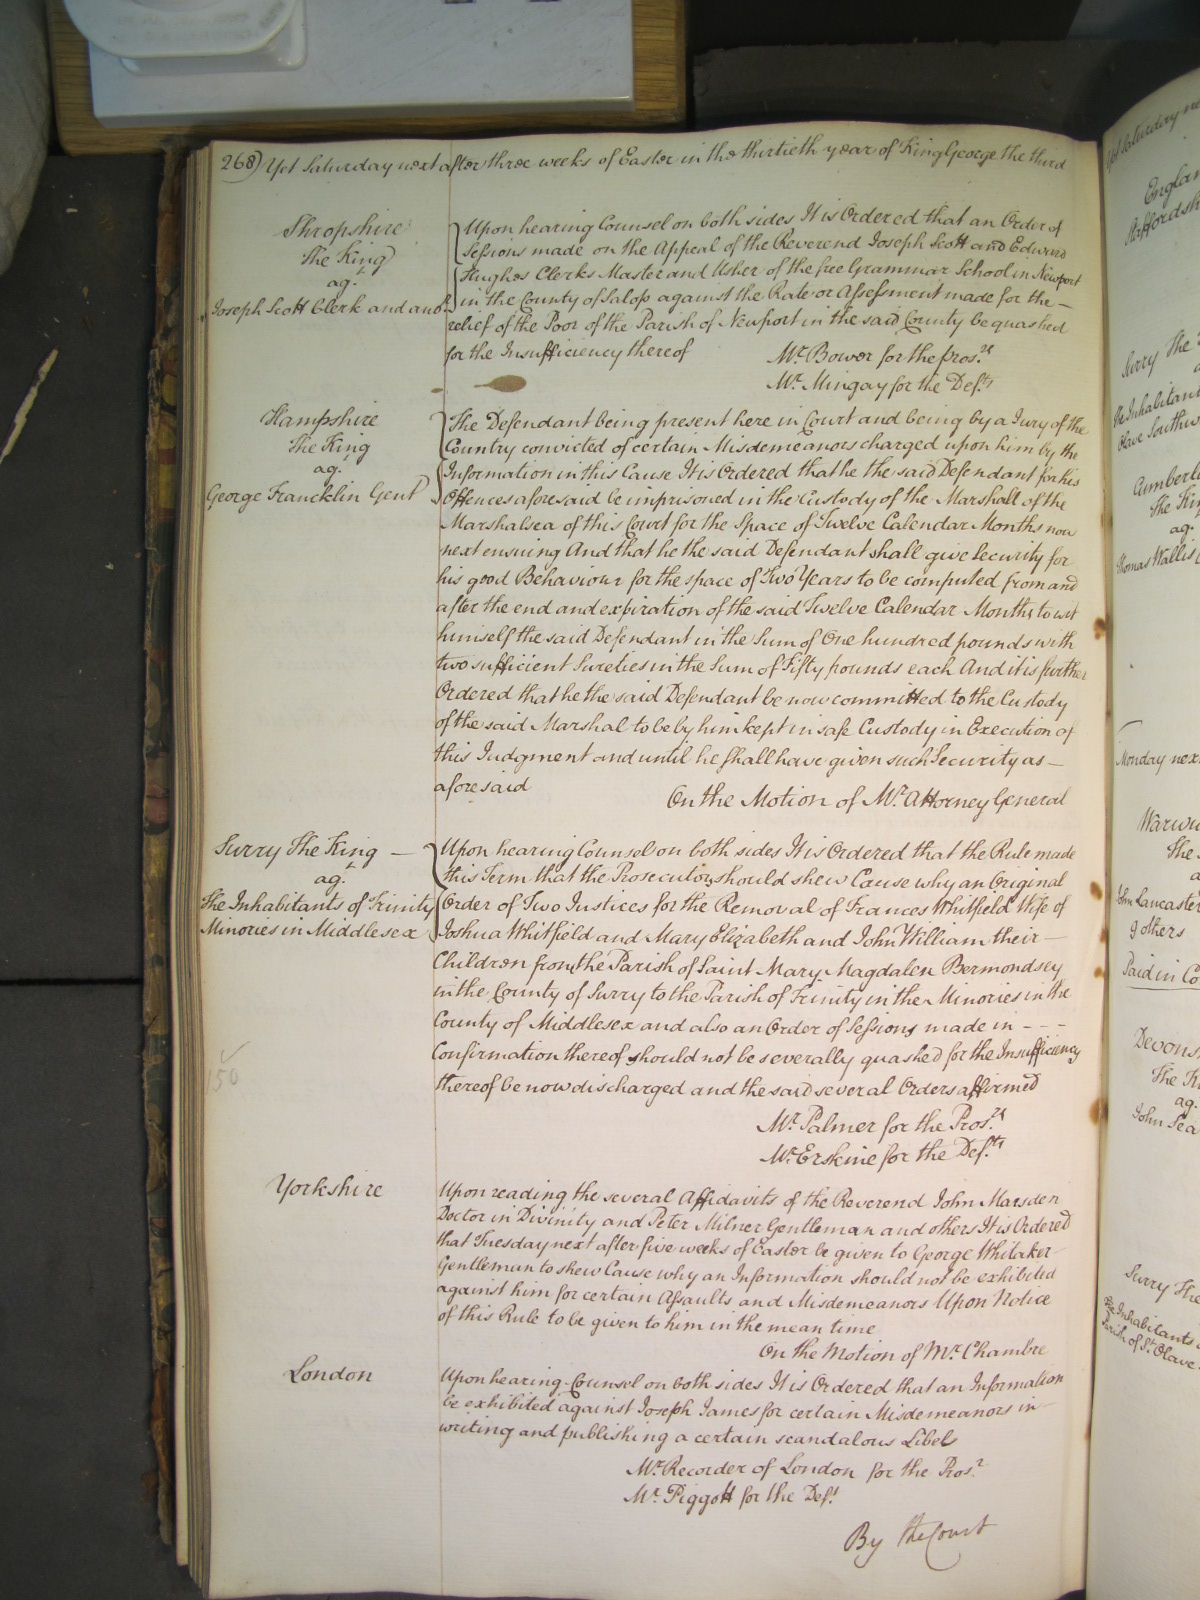 268) Yet Saturday next after three weeks of Easter in the thirtieth year of King George the third
Shropshire
The King
agt.
Joseph Scott Clerk and anor.
Upon hearing Counsel on both sides It is Ordered that an Order of
Sessions made on the Appeal of the Reverend Joseph Scott and Edward
Hughes Clerks Master and Usher of the free Grammar School in Newport
in the County of Salop against the Rate or Assessment made for the –
relief of the Poor of the Parish of Newport in the said County be quashed
for the Insufficiency thereof
Mr. Bower for the pros.rs
Mr. Mingay for the Def.ts
Hampshire
The King
agt.
George Francklin Gent
The Defendant being present here in Court and being by a Jury of the
Country convicted of certain Misdemeanors charged upon him by the
Information in this Cause It is Ordered that he the said Defendant for his
Offences aforesaid be imprisoned in the Custody of the Marshall of the
Marshalsea of this Court for the Space of Twelve Calendar Months now
next ensuing And that he the said Defendant shall give Security for
his good Behaviour for the space of Two Years to be computed from and
after the end and expiration of the said Twelve Calendar Months to wit
himself the said Defendant in the Sum of One hundred pounds with
two sufficient Sureties in the Sum of Fifty pounds each And it is further
Ordered that he the said Defendant be now committed to the Custody
of the said Marshal to be by him kept in safe Custody in Execution of
this Judgment and until he shall have given such Security as –
aforesaid
On the Motion of Mr. Attorney General
Surry The King –
agt.
The Inhabitants of Trinity
Minories in Middlesex
Upon hearing Counsel on both sides It is Ordered that the Rule made
this Term that the Prosecutors should shew Cause why an Original
Order of Two Justices for the Removal of Frances Whitfield Wife of
Joshua Whitfield and Mary Elizabeth and John William their –
Children from the Parish of Saint Mary Magdalen Bermondsey
in the County of Surry to the Parish of Trinity in the Minories in the
County of Middlesex and also an Order of Sessions made in - - -
Confirmation thereof should not be severally quashed for the Insufficiency
thereof be now discharged and the said several Orders affirmed
150
Mr. Palmer for the Pros.rs
Mr. Erskine for the Def.ts
Yorkshire
Upon reading the several Affidavits of the Reverend John Marsden
Doctor in Divinity and Peter Milner Gentleman and others It is Ordered
that Tuesday next after five weeks of Easter be given to George Whitaker
Gentleman to shew Cause why an Information should not be exhibited
against him for certain Assaults and Misdemeanors Upon Notice
of this Rule to be given to him in the mean time
On the Motion of Mr. Chambre
London
Upon hearing Counsel on both sides It is Ordered that an Information
be exhibited against Joseph James for certain Misdemeanors in
writing and publishing a certain scandalous Libel
Mr. Recorder of London for the Pros.r
Mr. Piggott for the Def.t
By the Court
Surry The
Cumberl
The Kin
agt.
Thomas Wallis
Monday nex
The
John Lancaster
9 others
Paid in Co
Devons
The K
agt.
John Pea
Surry The
The Inhabitants
Parish of St. Olave